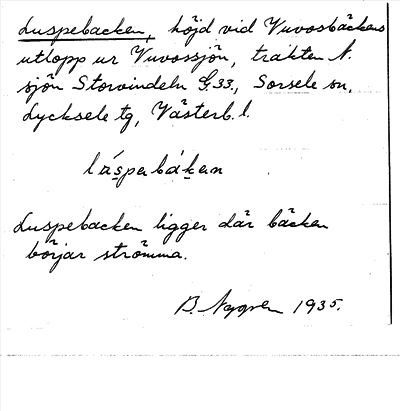 Luspebacken, höjd vid Vuvosbäckens
utlopp ur Vuvossjön, trakten N.
sjön Storvindeln G.33., Sorsele sn,
Lycksele tg, Västerb. l.
Luspebacken ligger där bäcken
börjar strömma.
B. Nygren 1935.